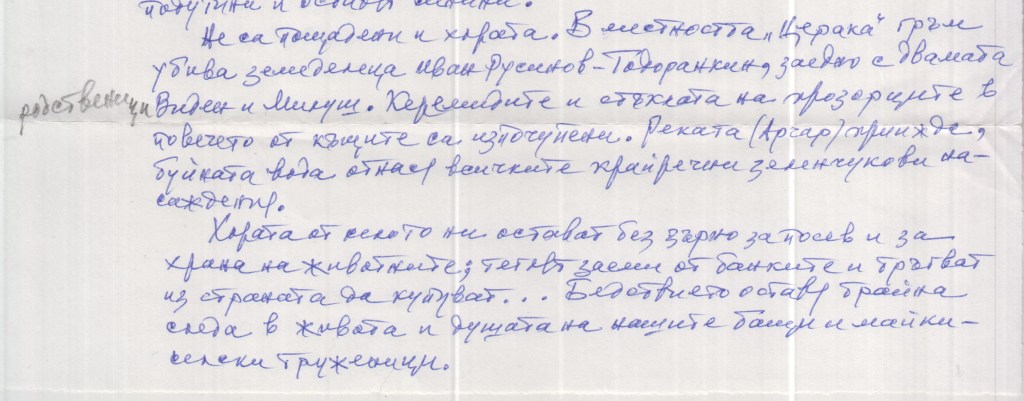 Не са пощадени и хората. В местността „Церака“ гръм
убива земеделеца Иван Русинов-Тодоранкин, заедно с двамата
родственици Виден и Милуш. Керемидите и стъклата на прозорците в
повечето от къщите са изпочупени. Реката (Арчар) прииде,
буйната вода отнася всичките крайречни зеленчукови на-
саждения.
Хората от селото ни остават без зърно за посев и за
храна на животните; теглят заеми от банките и тръгват
из страната да купуват... Бедствието оставя трайна
следа в живота и душата на нашите бащи и майки-
селски труженици.